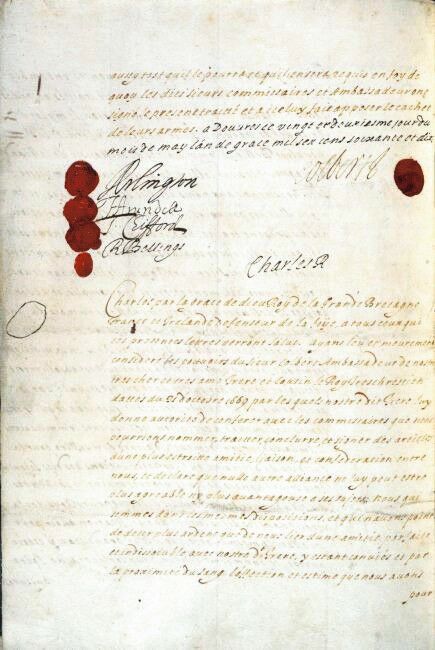 aussy tost quil le pourra et quil en sera requis en foy de
quoy les dits sieurs commissaires et Ambassadeur ont
signé le present traité et a iceluy fait apposer le cachet
de leurs armes. a Douvres ce vingt et deuxiesme jour du
mois de may lan de grace mil six cens soixante et dix
Arlington
Colbert
Arundell
T. Clifford
R Bellings
Charles R
Charles par la grace de dieu Roy de la Grande Bretagne
France et Irlande defenseur de la foye, a tous ceux qui
ces presentes letres verront salut. ayans leu et meurement
consideré les pouvoirs du sieur Colbert Ambassadeur de nostre
tres cher et tres amé frere et Cousin le Roy tres chrestien
dattés du 31 doctobre 1669 par les quels nostre dit frere luy
donne autorité de conferer avec les commissaires que nous
pourrions nommer, traitter, conclurre, et signer des articles
dune plus estroite amitie, liaison, et confederation entre
nous, et declare que nulle autre aliance ne luy peut estre
plus agreable ny plus avantageuse a ses sujets, nous qui
sommes dans les mesmes dispositions, et qui navons point
de desir plus ardent que de nous lier dune amitié
et indissoluble avec nostre dt frere, y estant conviés et par
la proximité du sang laffection et estime que nous avons
pour